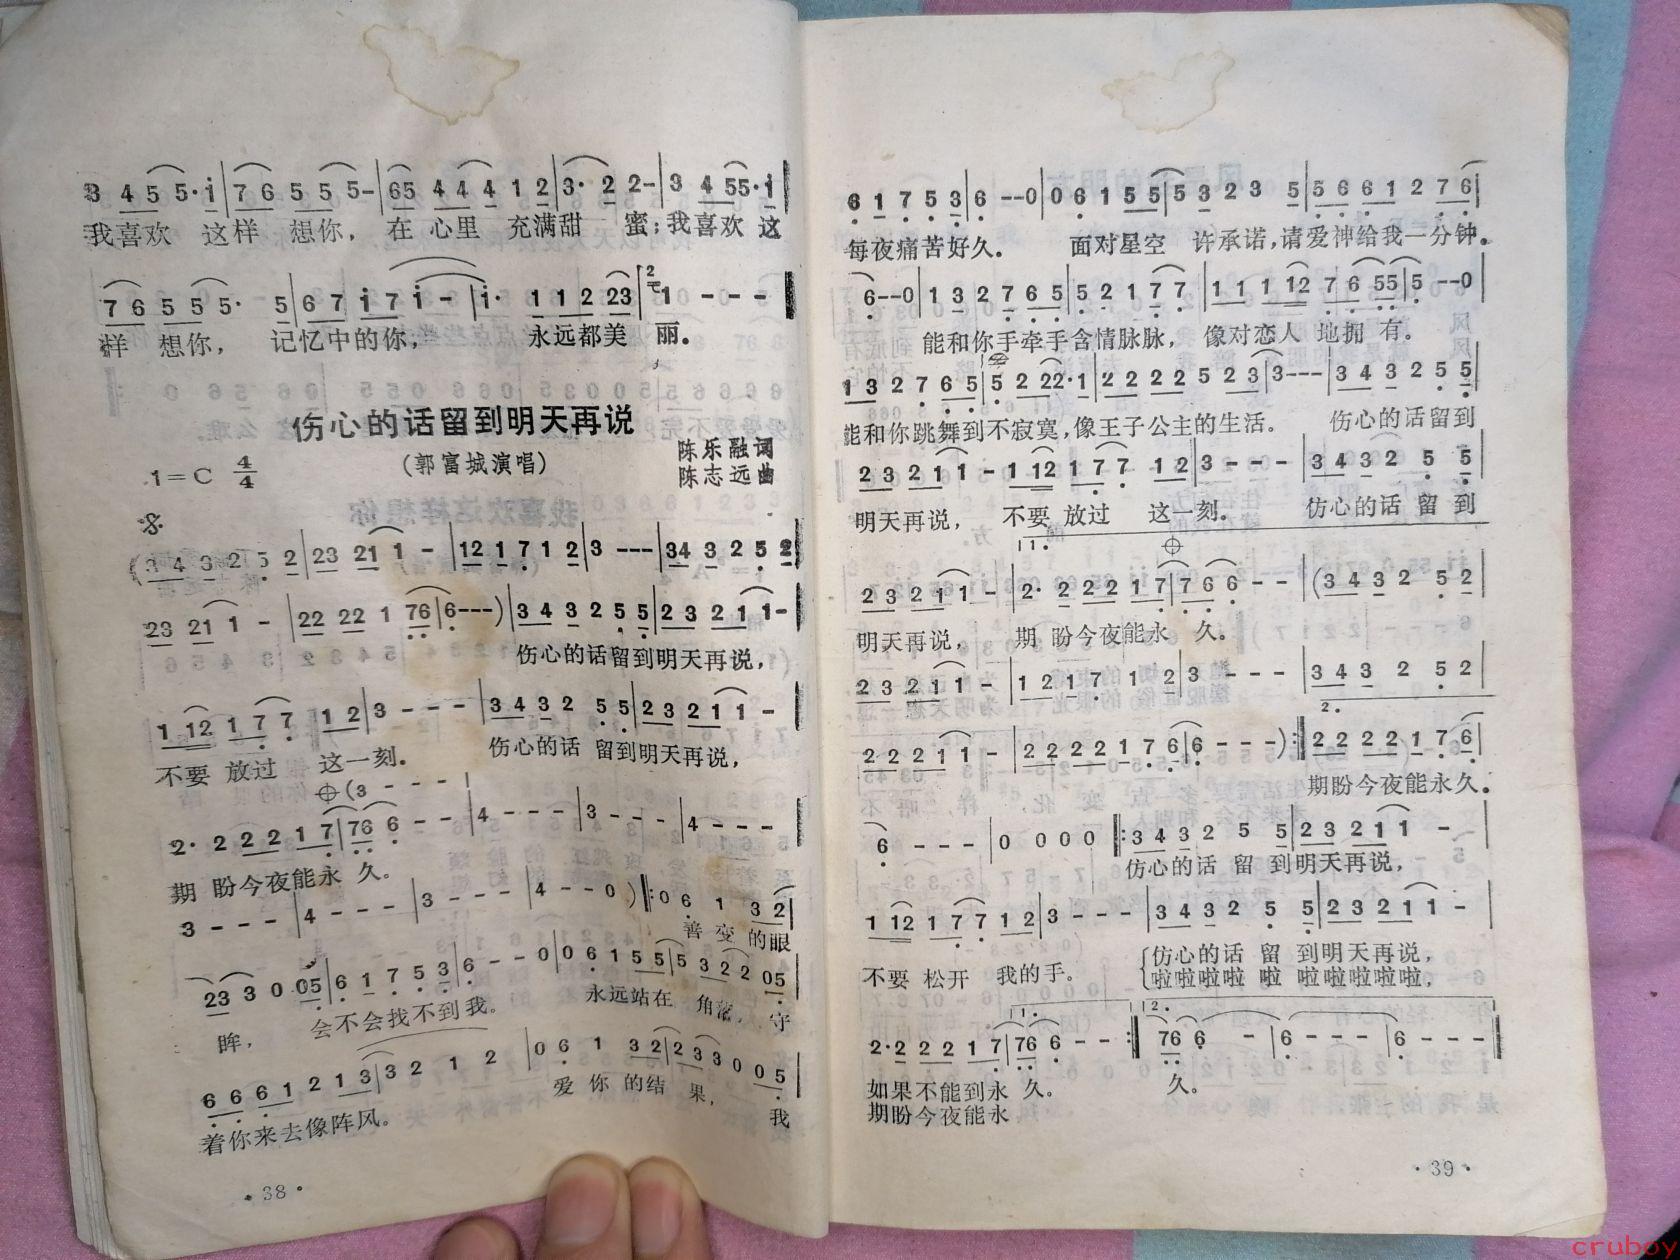 3 4 5 5· i | 7 6 5 5 5- | 65 4 4 4 1 2 | 3· 2 2- | 3 4 55· i
我喜欢 这样 想你, 在 心里 充满甜 蜜;我喜欢 这
7 6 5 5 5· 5 | 6 7 i 7 i - | i· 1 1 2 23 | 1 - - -
样 想你, 记忆中的你, 永远都美 丽。
伤心的话留到明天再说
(郭富城演唱)
陈乐融词
陈志远曲
1=C 4/4
(3 4 3 2 5 2 | 23 21 1 - | 12 1 7 1 2 | 3 - - - | 34 3 2 5 2
23 21 1 - | 22 22 1 76 | 6 - - - ) | 3 4 3 2 5 5 | 2 3 2 1 1 -
伤心的话留到明天再说,
1 12 1 7 7 1 2 | 3 - - - | 3 4 3 2 5 5 | 2 3 2 1 1 -
不要 放过 这一刻。 伤心的话 留到明天再说,
(3 - - -
2· 2 2 2 1 7 | 76 6 - - | 4 - - - | 3 - - - | 4 - - -
期 盼今夜能永 久。
3 - - - | 4 - - - | 3 - - - | 4 - - 0 ) |: 0 6 1 3 2
善 变 的眼
23 3 0 05 | 6 1 7 5 3 | 6 - - 0 | 0 6 1 5 5 | 5 3 2 2 05
眸, 会不会找不到我。 永远站在 角落, 守
6 6 6 1 2 1 3 | 3 2 1 2 | 0 6 1 3 2 | 2 3 3 0 0 5
着你来去像阵风。 爱 你 的结 果, 我
·38·
6 1 7 5 3 | 6 - - 0 | 0 6 1 5 5 | 5 3 2 3 5 | 5 6 6 1 2 7 6
每夜痛苦好久。 面对星空 许承诺,请爱神给我一分钟。
6 - - 0 | 1 3 2 7 6 5 | 5 2 1 7 7 | 1 1 1 12 7 6 55 | 5 - - 0
能和你手牵手含情脉脉, 像对恋人 地拥 有。
1 3 2 7 6 5 | 5 2 22· 1 | 2 2 2 2 5 2 3 | 3 - - - | 3 4 3 2 5 5
能和你跳舞到不寂寞,像王子公主的生活。 伤心的话留到
2 3 2 1 1 - | 1 12 1 7 7 1 2 | 3 - - - | 3 4 3 2 5 5
明天再说, 不要 放过 这一刻. 伤心的话 留 到
1.
2 3 2 1 1 - | 2· 2 2 2 1 7 | 7 6 6 - - | (3 4 3 2 5 2
明天再说, 期 盼今夜能永 久。
2 3 2 1 1 - | 1 2 1 7 1 2 | 3 - - - | 3 4 3 2 5 2
2.
2 2 2 1 1 - | 2 2 2 2 1 7 6 | 6 - - - ) :| 2 2 2 2 1 7 6
期盼今夜能永久。
6 - - - | 0 0 0 0 |: 3 4 3 2 5 5 | 2 3 2 1 1 -
伤心的话 留 到明天再说,
1 12 1 7 7 1 2 | 3 - - - | 3 4 3 2 5 5 | 2 3 2 1 1 -
不要 松开 我的手。 伤心的话 留 到明天再说,
啦啦啦啦 啦 啦啦啦啦啦,
1. 2.
2· 2 2 2 1 7 | 76 6 - - :| 76 6 - | 6 - - - | 6 - - -
如果不能到永 久。 久。
期盼今夜能永
·39·
cruboy